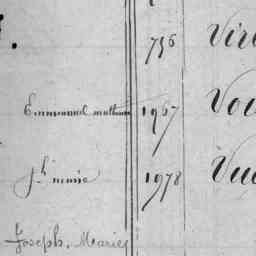 736 Vir
Emmanuel mathieu 1967 Vou
Jh marie 1978 Vu
Joseph. Marie